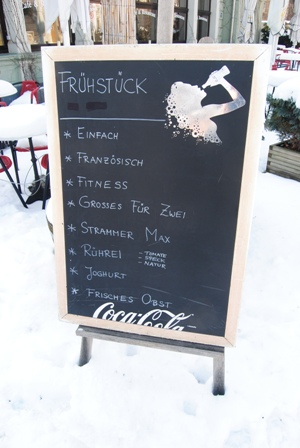 FRÜHSTÜCK
* EINFACH
* FRANZÖSISCH
* FITNESS
* GROSSES FÜR ZWEI
* STRAMMER MAX
* RÜHREI - TOMATE
- SPECK
- NATUR
* JOGHURT
* FRISCHES OBST
Coca-Cola